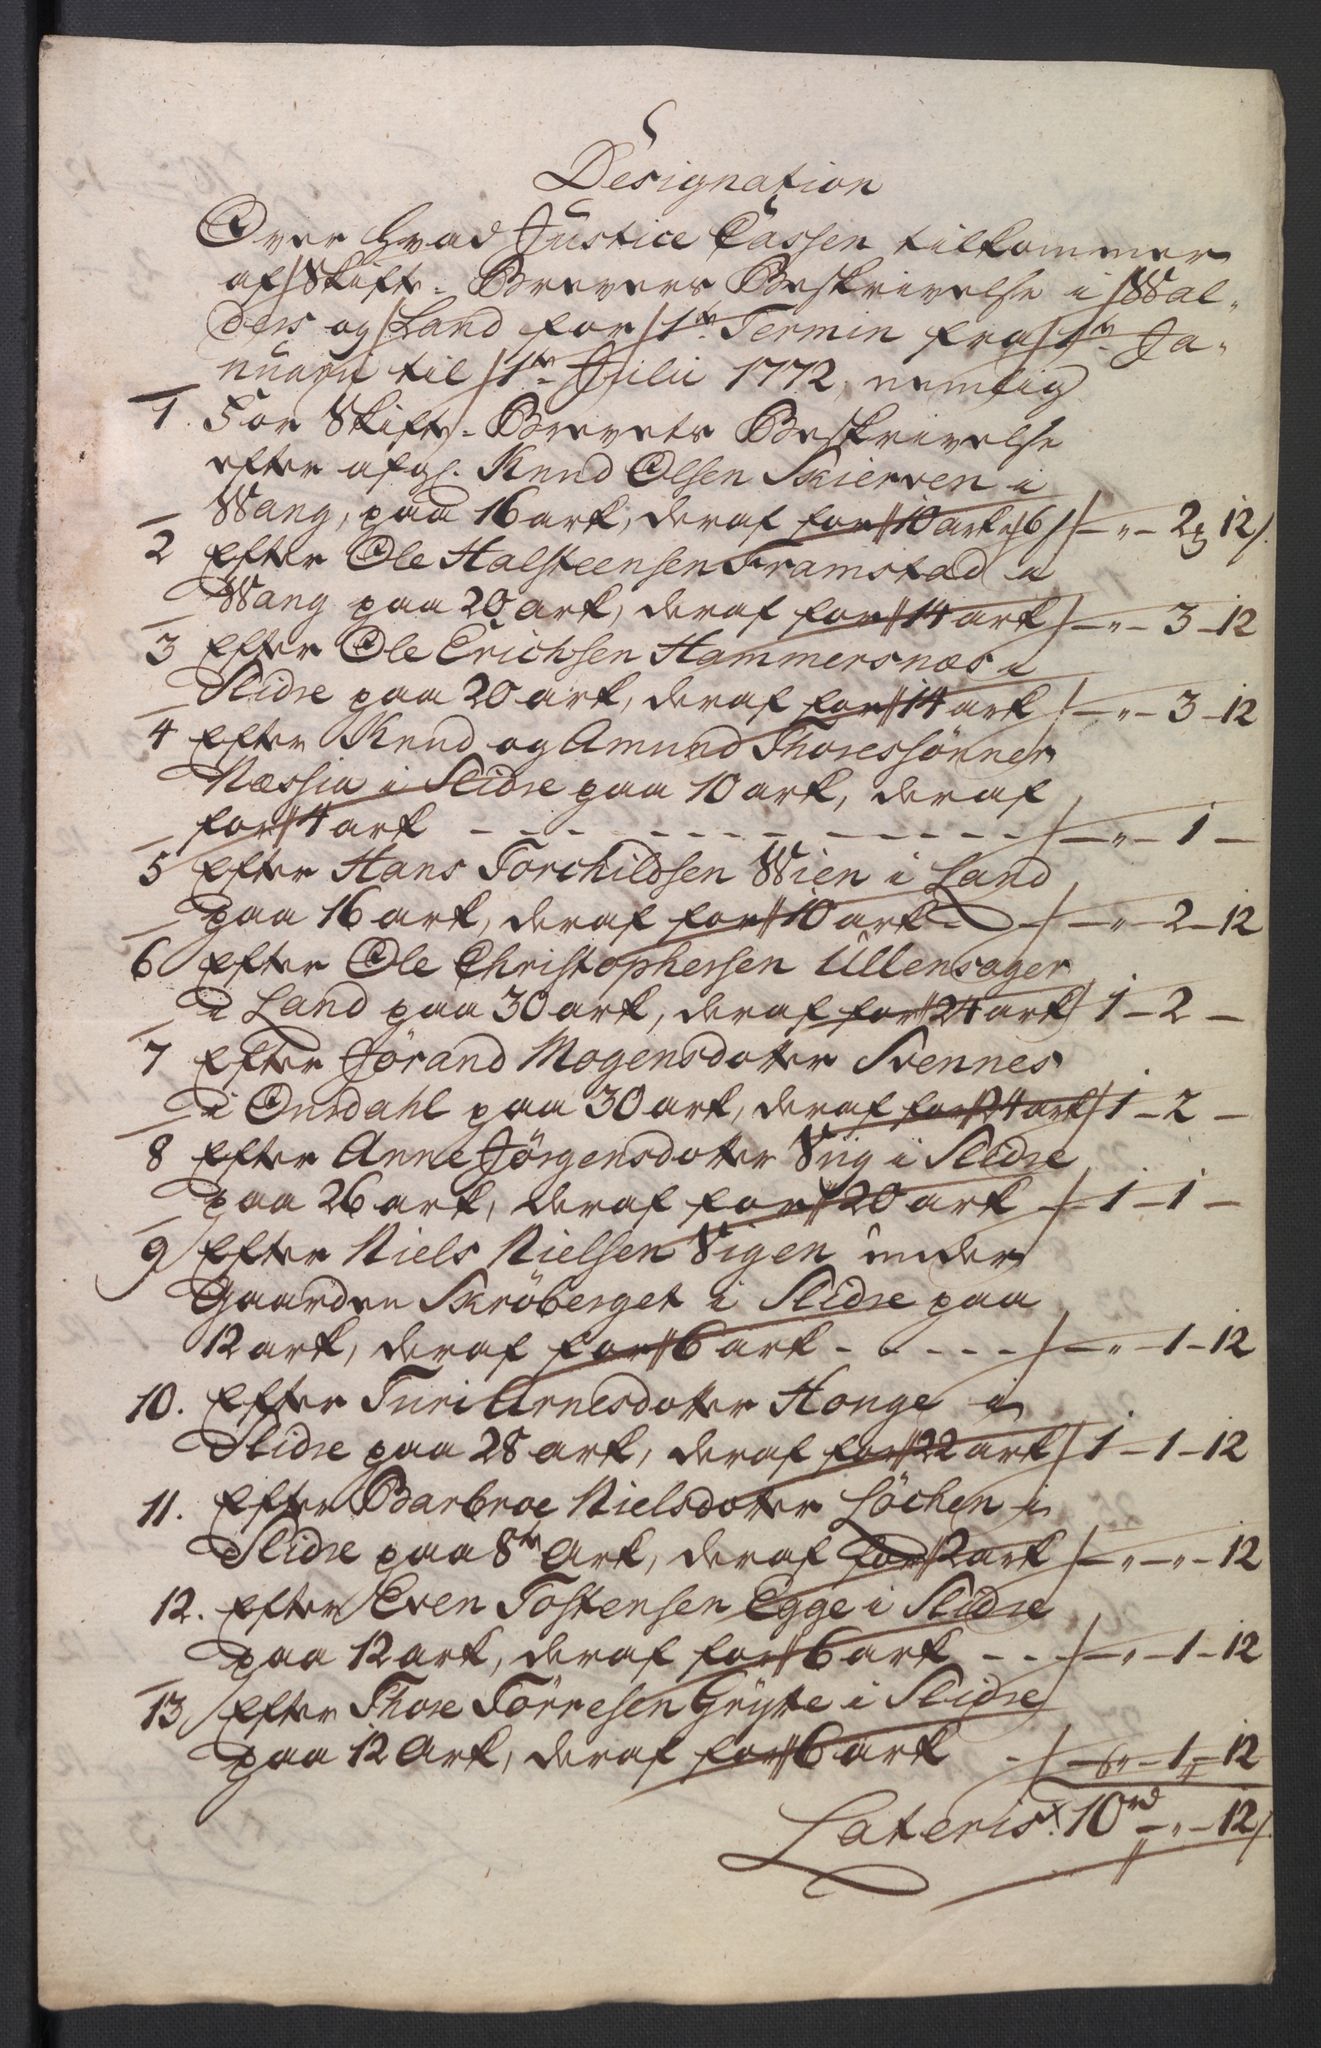 Designation
Over hvad Justice Cassen tilkommer
af Skifte-Brevers Beskrivelse i Wal-
ders og Land for 1te Termin fra 1te Ja-
nuarii til 1te Julii 1772, nemlig
1. For Skifte-Brevets Beskrivelse
efter afg. Knud Olsen Skierven i
Wang, paa 16 ark, deraf for 10 ark à 6 s — " — 2 12 s.
2 Efter Ole Halsteensen Framstad i
Wang paa 20 ark, deraf for 14 ark — " — 3 — 12
3 Efter Ole Erichsen Hammersnæs i
Slidre paa 20 ark, deraf for 14 ark — " — 3 — 12
4 Efter Knud og Amund Thoressønner
Næssia i Slidre paa 10 ark, deraf
for 4 ark — " — 1 —
5 Efter Hans Torchildsen Wien i Land
paa 16 ark, deraf for 10 ark — " — 2 — 12
6 Efter Ole Christophersen Ullensager
i Land paa 30 ark, deraf for 24 ark 1 — 2 —
7 Efter Jørand Mogensdotter Svennes
i Ourdahl paa 30 ark, deraf for 24 ark 1 — 2 —
8 Efter Anne Jörgensdotter Viig i Slidre
paa 26 ark, deraf for 20 ark — 1 — 1 —
9 Efter Niels Nielsen Vigen under
Gaarden Skröberget i Slidre paa
12 ark, deraf for 6 ark - - - - — " — 1 — 12
10. Efter Turi Arnesdotter Houge i
Slidre paa 28 ark, deraf for 22 ark 1 — 1 — 12
11. Efter Barbroe Nielsdotter Löchen i
Slidre paa 8te Ark, deraf for 2 ark — " — " — 12
12. Efter Even Tostensen Egge i Slidre
paa 12 ark, deraf for 6 ark - - - — " — 1 — 12
13 Efter Thore Törresen Gryte i Slidre
paa 12 Ark, deraf for 6 ark - — " — 1 — 12
Lateris 10 rd — " — 12 s.